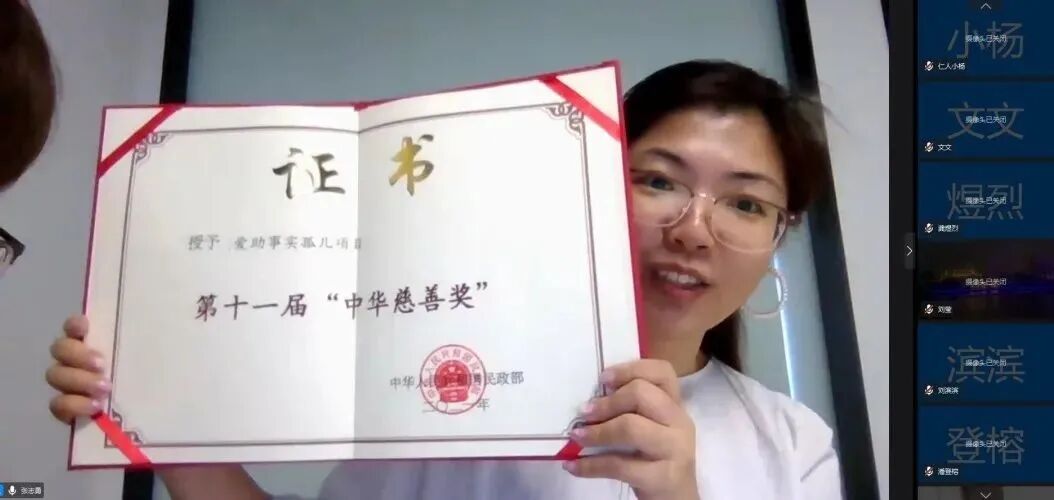 证书
授予 爱助事实孤儿项目
第十一届“中华慈善奖”
中华人民共和国民政部
二〇二一年
张志勇
小杨
摄像头已关闭
仁人小杨
文文
摄像头已关闭
文文
煜烈
摄像头已关闭
龚煜烈
摄像头已关闭
刘莹
滨滨
摄像头已关闭
刘滨滨
登榕
摄像头已关闭
潘登榕